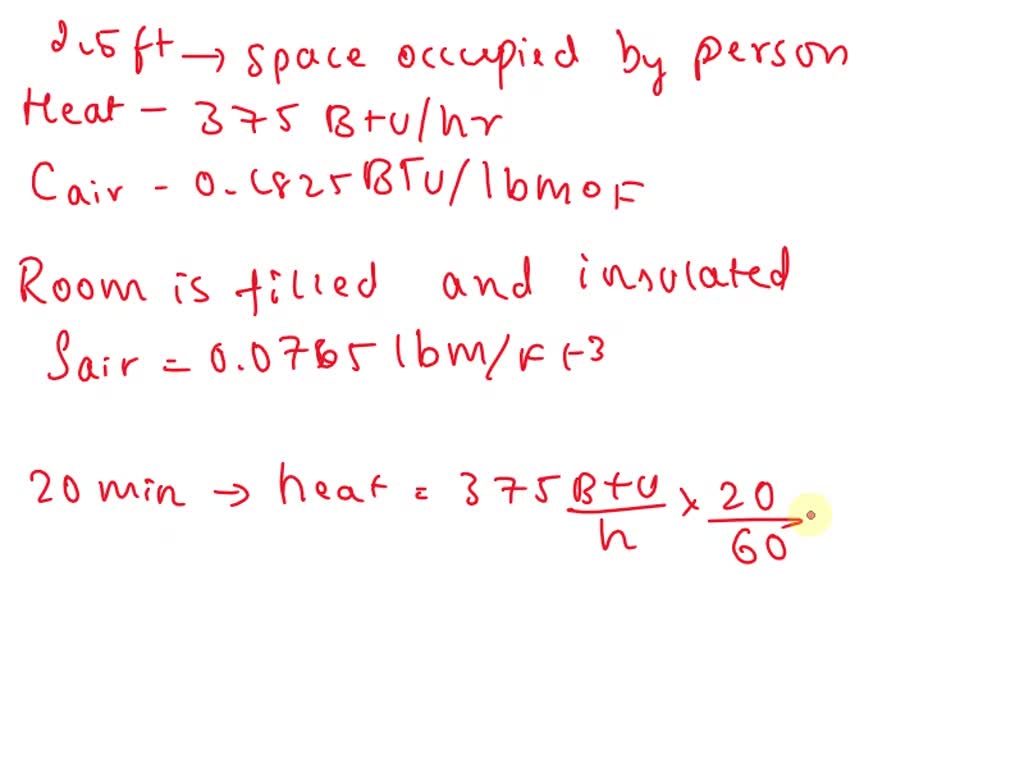 2.5 ft → space occupied by person
Heat - 375 Btu/hr
Cair - 0.1825 BTU/lbm°F
Room is filled and insulated
ρair = 0.0765 lbm/Ft³
20 min → heat = 375 Btu/h × 20/60